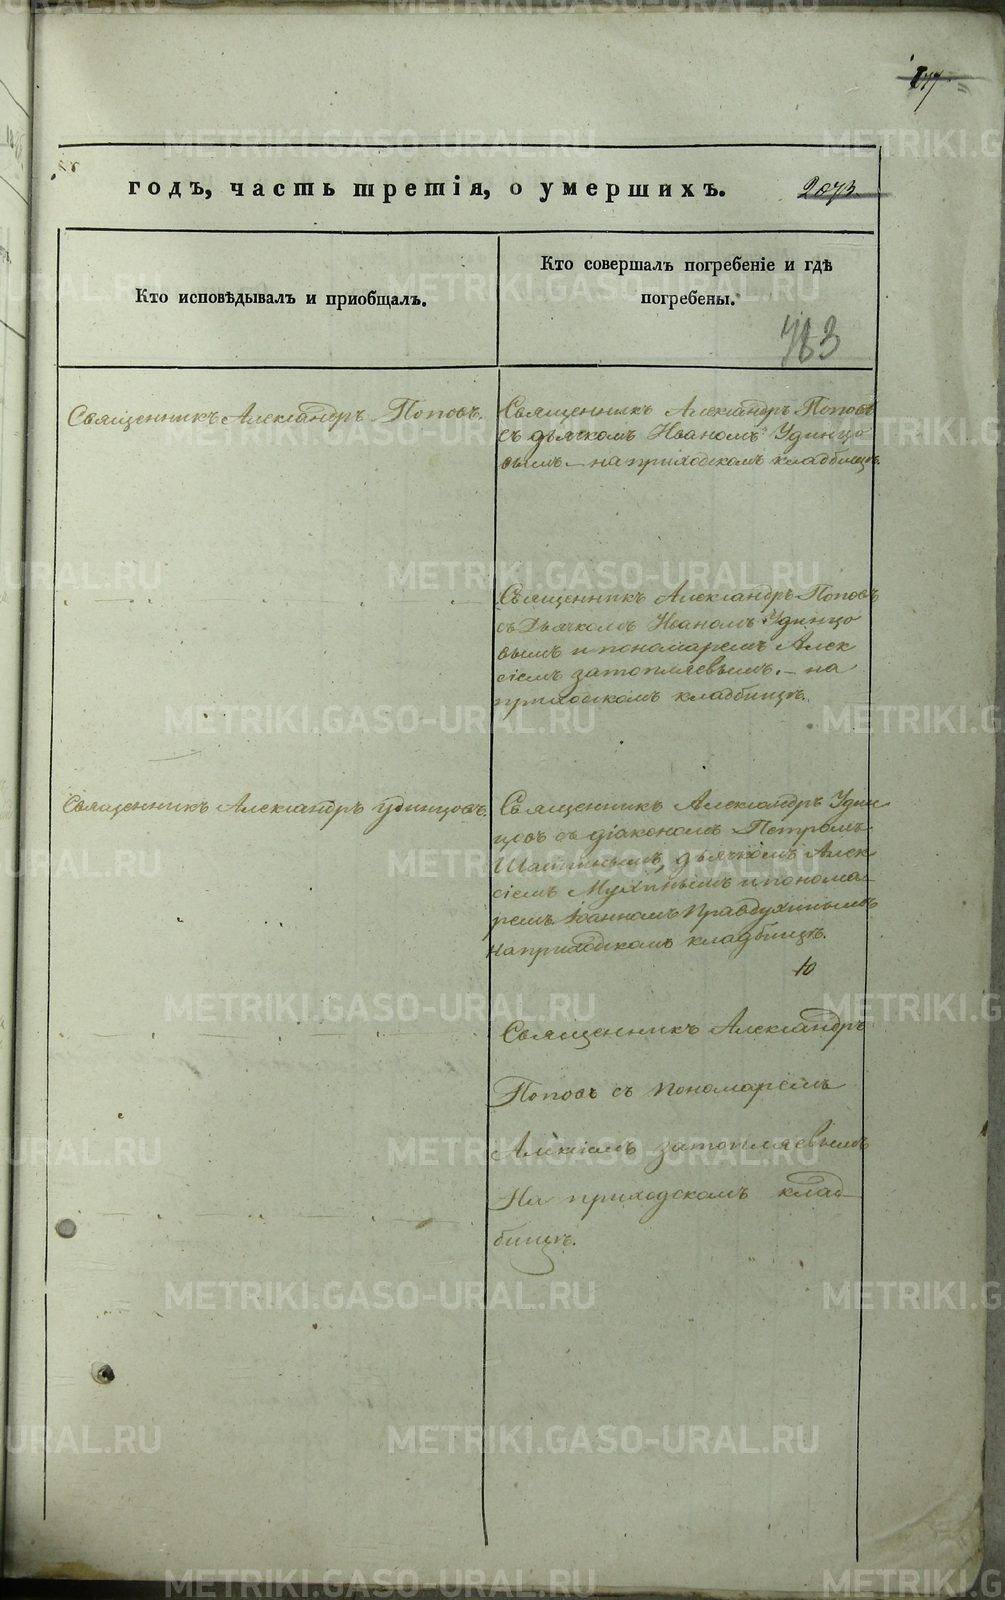 годъ, часть третія, о умершихъ.
2073.
Кто исповѣдывалъ и приобщалъ.
Кто совершалъ погребеніе и гдѣ
погребены.
Священникъ Александръ Поповъ.
Священникъ Александръ Поповъ
съ дьячкомъ Иваномъ Удинцо
вымъ – на приходскомъ кладбищѣ.
Священникъ Александръ Поповъ
съ Дьячкомъ Иваномъ Удинцо
вымъ и пономаремъ Алек
сіемъ Затопляевымъ. – на
приходскомъ кладбищѣ.
Священникъ Александръ Удинцовъ.
Священникъ Александръ Удин
цовъ съ діакономъ Петромъ
дьячкомъ Алек
сіемъ Мухинымъ и понома-
ремъ Іоанномъ Правдухинымъ
на приходскомъ кладбищѣ.
Ю
Священникъ Александръ
Поповъ съ пономаремъ
Алексіемъ Затопляевымъ
На приходскомъ клад
бищѣ.
METRIKI.GASO-URAL.RU